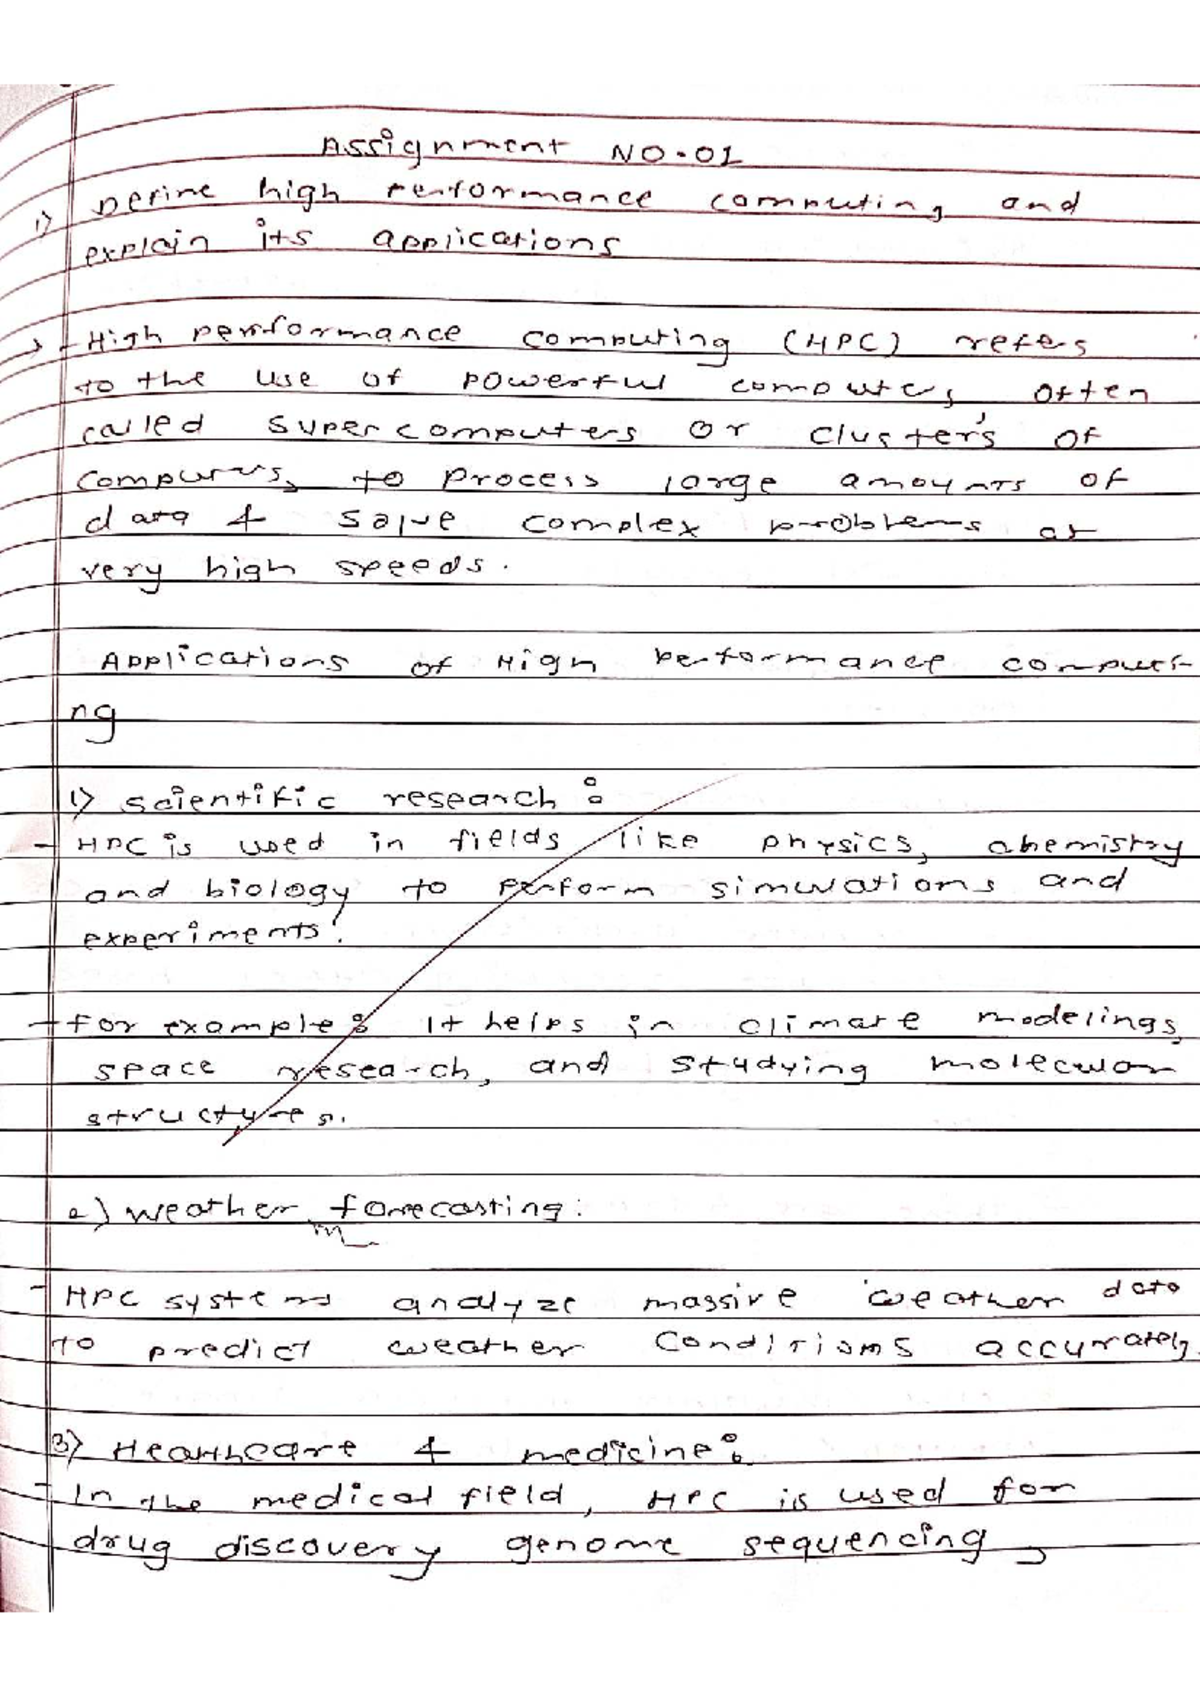 Assignment NO.01
1) Define high performance computing and
explain its applications
→ - High performance computing (HPC) refers
to the use of powerful computers, often
called supercomputers or cluster's of
computers, to process large amounts of
data & solve complex problems at
very high speeds.
Applications of High performance computi-
ng
1) scientific research :
- HPC is used in fields like physics, chemistry
and biology to perform simulations and
experiments.
- for example : It helps in climate modelings,
space research, and studying molecular
structures.
2) weather forecasting :
- HPC systems analyze massive weather data
to predict weather conditions accurately.
3) Healthcare & medicine :
- In the medical field, HPC is used for
drug discovery genome sequencing ,